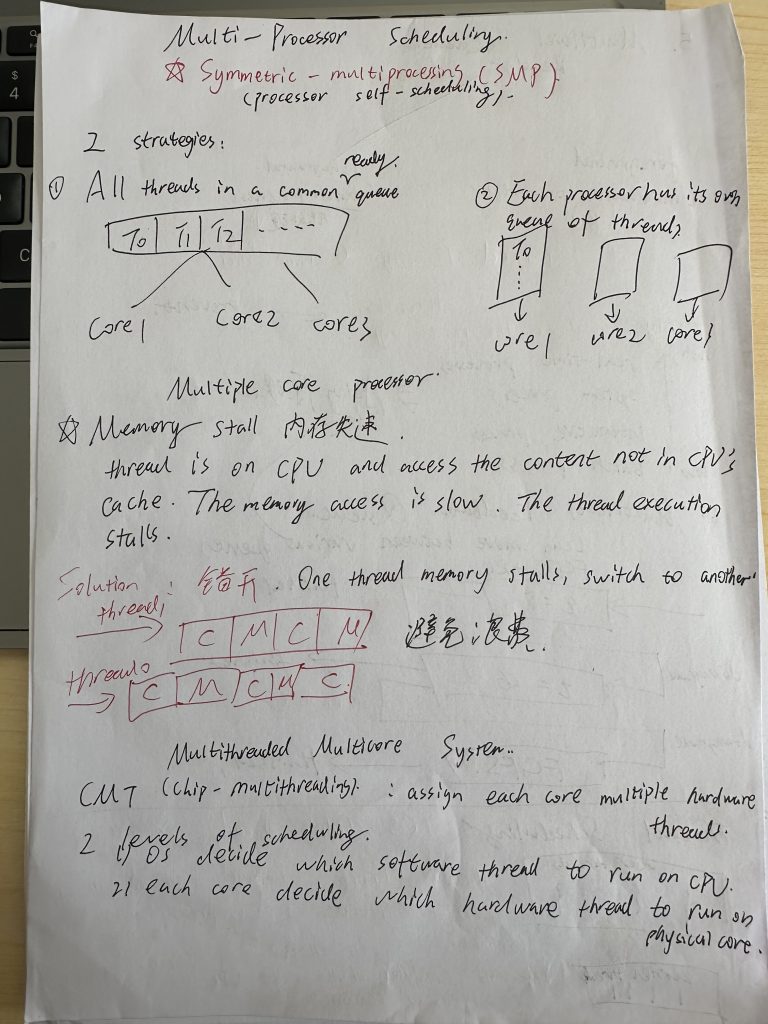 Multi-Processor Scheduling.
☆ Symmetric-multiprocessing (SMP).
(processor self-scheduling).
2 strategies:
① All threads in a common ready queue
T0 T1 T2 -----
core1 core2 core3
② Each processor has its own
queue of threads
T0
core1 core2 core3
Multiple core processor.
☆ Memory stall 内存失速.
thread is on CPU and access the content not in CPU's
cache. The memory access is slow. The thread execution
stalls.
Solution: 错开. One thread memory stalls, switch to another.
thread1
C M C M
避免浪费.
thread0
C M C M C
Multithreaded Multicore System..
CMT (chip-multithreading). : assign each core multiple hardware
threads.
2 levels of scheduling.
1) Os decide which software thread to run on CPU.
2) each core decide which hardware thread to run on
physical core.